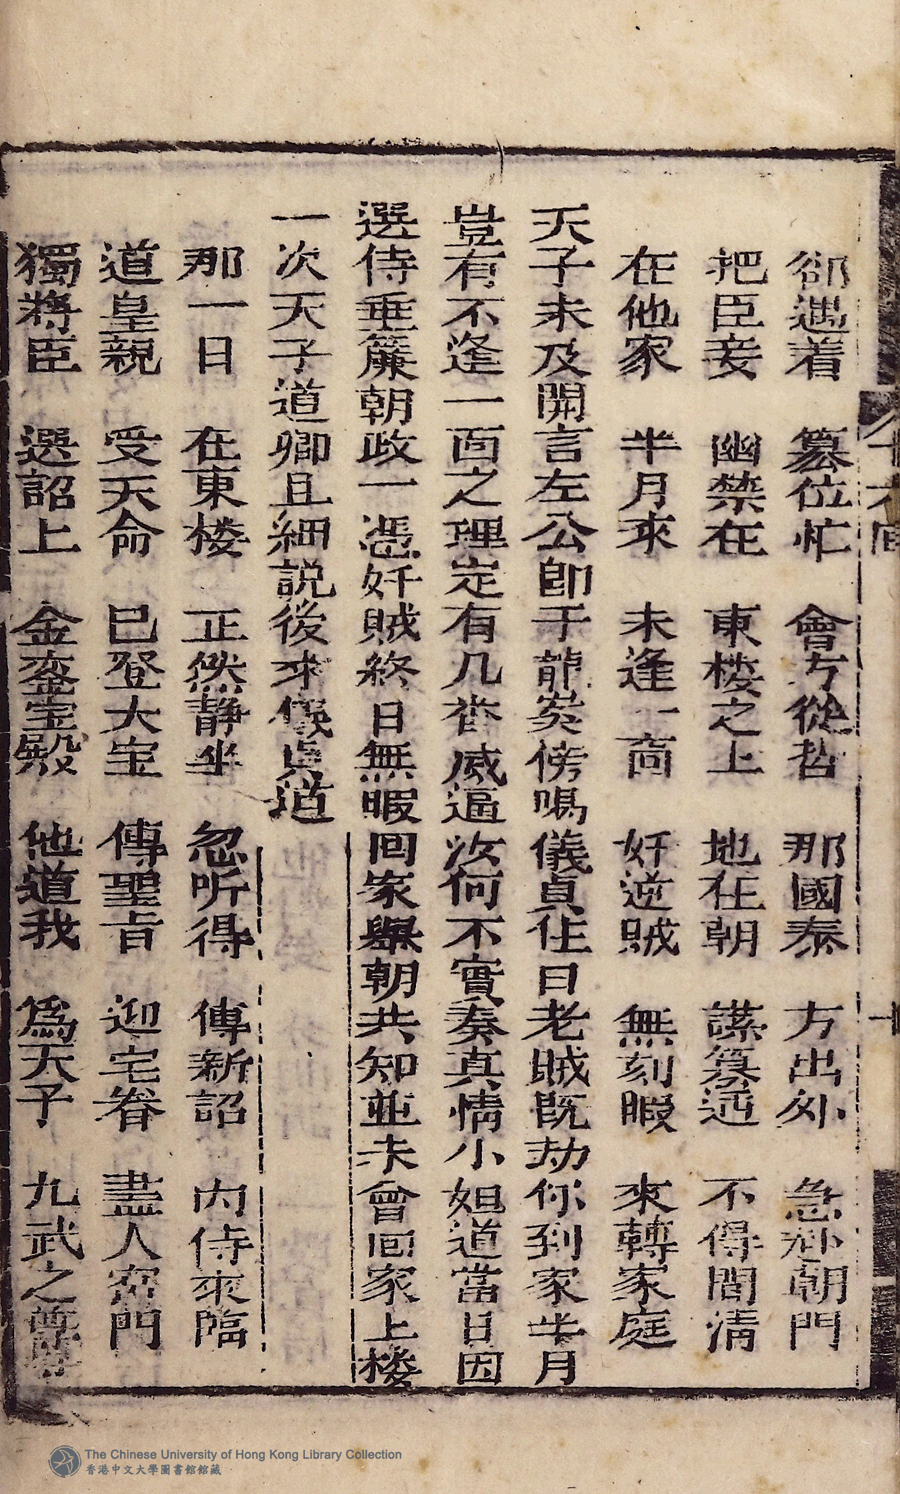 卻遇着 篡位忙 會方從哲 那國泰 方出外 急赴朝門
把臣妾 幽禁在 東楼之上 地在朝 謀篡逆 不得閒淸
在他家 半月來 未逢一面 奸逆賊 無刻暇 來轉家庭
天子未及開言左公即于龍案傍鳴儀貞住曰老賊既劫你到家半月
豈有不逢一面之理定有几畨威逼汝何不實奏真情小姐道當日因
選侍垂簾朝政一憑奸賊終日無暇回家舉朝共知並未曾回家上楼
一次天子道卿且細説後來儀貞道
那一日 在東楼 正然靜坐 忽听得 傳新詔 内侍來臨
道皇親 受天命 巳登大宝 傳聖旨 迎宅眷 盡人宮門
獨將臣 選詔上 金鑾宝殿 他道我 為天子 九武之尊
十六回
十
The Chinese University of Hong Kong Library Collection
香港中文大學圖書館館藏